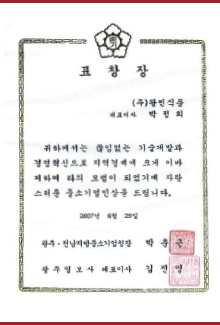 표 창 장
(주)왕인식품
대표이사 박 정 희
귀하께서는 끊임없는 기술개발과
경영혁신으로 지역경제에 크게 이바
지하여 타의 모범이 되었기에 자랑
스러운 중소기업인상을 드립니다.
2007년 6월 29일
광주·전남지방중소기업청장 박 춘
광주일보사 대표이사 김 진 영